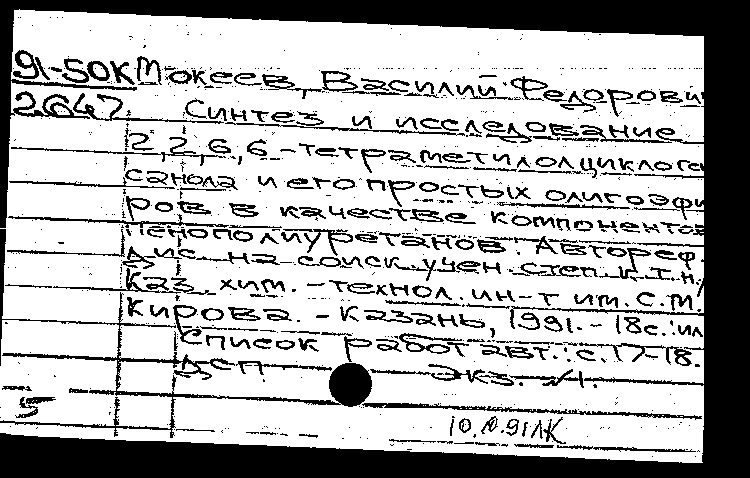 91-50К Мокеев, Василий Федорови
2647 Синтез и исследование
2,2,6,6-тетраметилолциклоге
санола и его простых олигоэфи
ров в качестве компонентов
пенополиуретанов. Автореф.
дис. на соиск. учен. степ. к.т.н./
Каз. хим.-технол. ин-т им. С.М.
Кирова. - Казань, 1991. - 18с.: ил
Список работ авт.: с. 17-18.
ДСП. Экз.
5
10.10.91